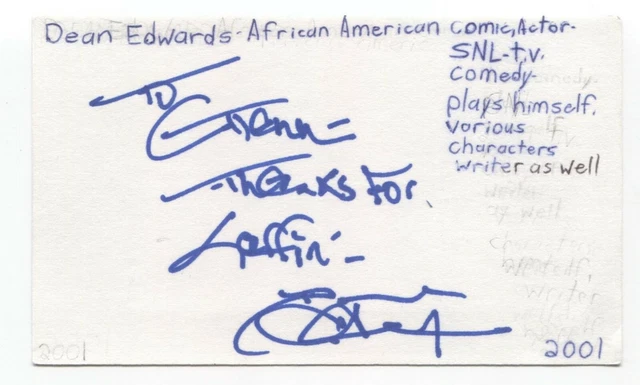 Dean Edwards-African American comic, Actor-
SNL-t.v.
comedy-
plays himself.
various
characters
writer as well
To
Glenn-
-Thanks For
Laffin'-
2001
2001